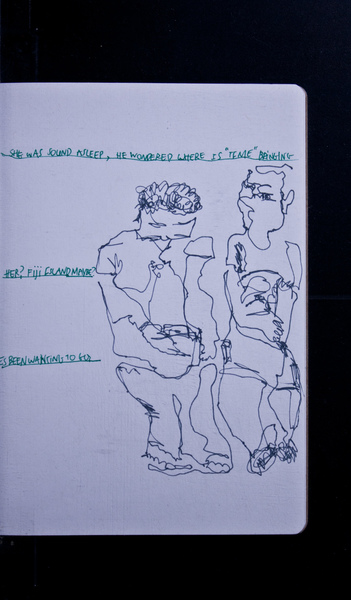 SHE WAS SOUND ASLEEP, HE WONDERED WHERE IS "TENSE" BRINGING
HER? FIJI GRANDMAMA?
'S BEEN WANTING TO GO...